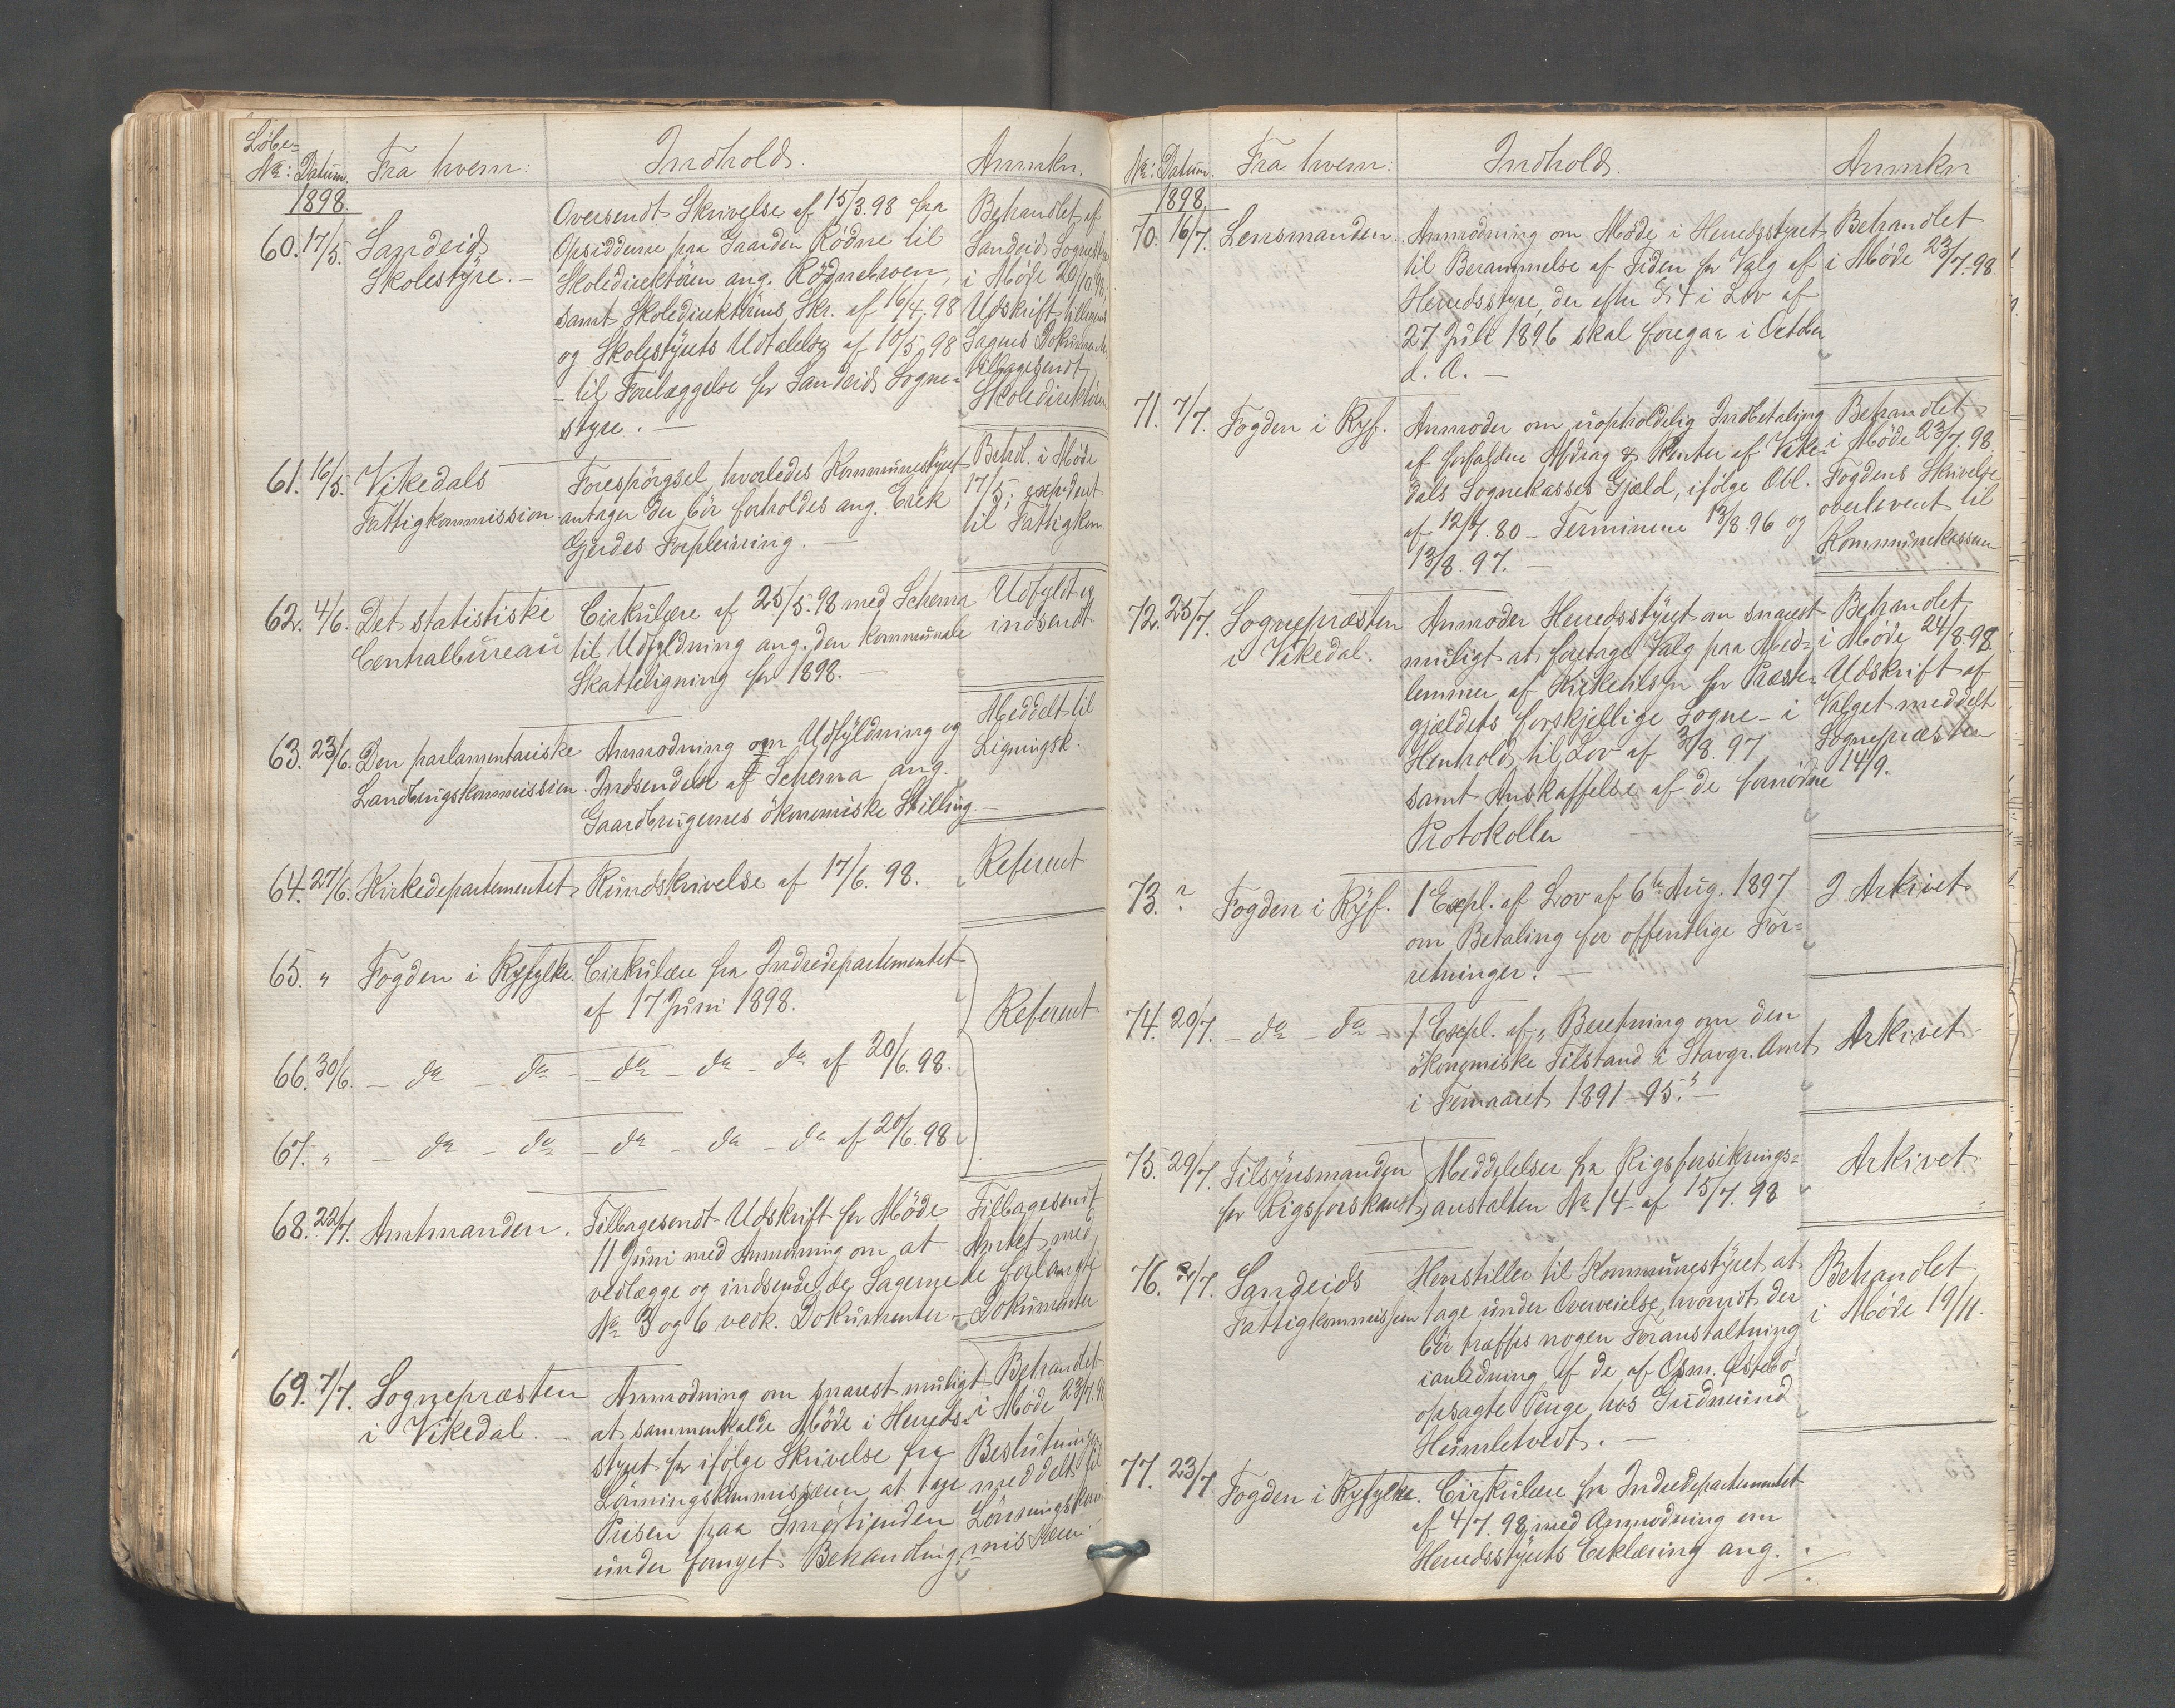 Löbe=
No: Datum. Fra hvem: Indhold. Anmkn.
1898.
60. 17/5. Sandeid
Skolestyre. –
Oversendt Skrivelse af 15/3.98 fra
Opsidderne paa Gaarden Rödne til
Skoledirektören ang. Rödnebroen,
samt Skoledirektörens Skr. af 16/4.98
og Skolestyrets Udtalelse af 10/5.98
– til Forelæggelse for Sandeids Sogne-
styre. –
Behandlet af
Sandeids Sognestyre
i Möde 20/10 98
Udskrift tillemed
Sagens Dokumenter
tilbagesendt
Skoledirektören
61. 16/5. Vikedals
Fattigkommission.
Forespörgsel, hvorledes Kommunestyret
antager der bör forholdes ang. Erek
Gjerdes Forpleining. –
Behdl. i Möde
17/5; expedert
til Fattigkom.
62. 4/6. Det statistiske
Centralbureau
Cirkulære af 25/5.98 med Schema
til Udfyldning ang. den kommunale
Skatteligning for 1898. –
Udfyldt og
indsendt
63. 23/6. Den parlamentariske
Landbrugskommission.
Anmodning om Udfyldning og
Indsendelse af Schema ang.
Gaardbrugernes ökonomiske Stilling. –
Meddelt til
Ligningsk.
64. 27/6. Kirkedepartementet Rundskrivelse af 17/6. 98. Referert
65. " Fogden i Ryfylke. Cirkulære fra Indredepartementet
af 17 Juni 1898.
Referert
66. 30/6. – do – do – do – do – do af 20/6.98.
67. " – do – do – do – do – do af 20/6.98
68. 22/7. Amtmanden.
Tilbagesendt Udskrift for Möde
11 Juni med Anmodning om at
vedlægge og indsende de Sagerne
No 3 og 6 vedk. Dokumenter –
Tilbagesendt
Amtet med
de forlangte
Dokumenter
69. 7/7. Sognepræsten
i Vikedal. –
Anmodning om snarest muligt
at sammenkalde Möde i Hereds-
styret for ifölge Skrivelse fra
Lönningskommissionen at tage
Prisen paa Smörtienden
under fornyet Behandling.
Behandlet
i Möde 23/7.98
Beslutningen
meddelt til
Lönningskom
missionen
No: Datum. Fra hvem: Indhold. Anmkn
1898.
70. 16/7. Lensmanden.
Anmodning om Möde i Heredsstyret
til Berammelse af Tiden for Valg af
Heredsstyre, der efter § 4 i Lov af
27 Juli 1896 skal foregaa i October
d. A. –
Behandlet
i Möde 23/7.98
71. 7/7. Fogden i Ryf.
Anmoder om uopholdelig Indbetaling
af forfaldne Afdrag & Renter af Vike-
dals Sognekasses Gjæld, ifölge Obl.
af 12/7.80 – Terminene 13/8.96 og
13/8.97. –
Behandlet
i Möde 23/7.98
Fogdens Skrivelse
overleveret til
Kommunekassereren
72. 25/7. Sognepræsten
i Vikedal.
Anmoder Heredsstyret om snarest
muligt at foretage Valg paa Med-
lemmer af Kirketilsyn for Præste-
gjældets forskjellige Sogne – i
Henhold til Lov af 3/8.97
samt Anskaffelse af de fornödne
Protokoller
Behandlet
i Möde 24/8.98
Udskrift af
Valget meddelt
Sognepræsten
14/9.
73. ? Fogden i Ryf.
1 Expl. af Lov af 6te Aug. 1897
om Betaling for offentlige For=
retninger. –
I Arkivet
74. 20/7. – do – do –
1 Expl. af „Beretning om den
ökonomiske Tilstand i Stavgr. Amt
i Femaaret 1891–95." –
Arkivet
75. 29/7. Tilsynsmanden
for Rigsforsk.anst.
Meddelelser fra Rigsforsikrings=
anstalten No 14 af 15/7.98
Arkivet
76. /7. Sandeids
Fattigkommission
Henstiller til Kommunestyret at
tage under Overveielse, hvorvidt der
bör træffes nogen Foranstaltning
ianledning af de af Osm. Östebö
opsagte Penge hos Gudmund
Humletvedt. –
Behandlet
i Möde 19/11.
77. 23/7 Fogden i Ryfylke.
Cirkulære fra Indredepartementet
af 4/7.98 med Anmodning om
Heredsstyrets Erklæring ang. ./.